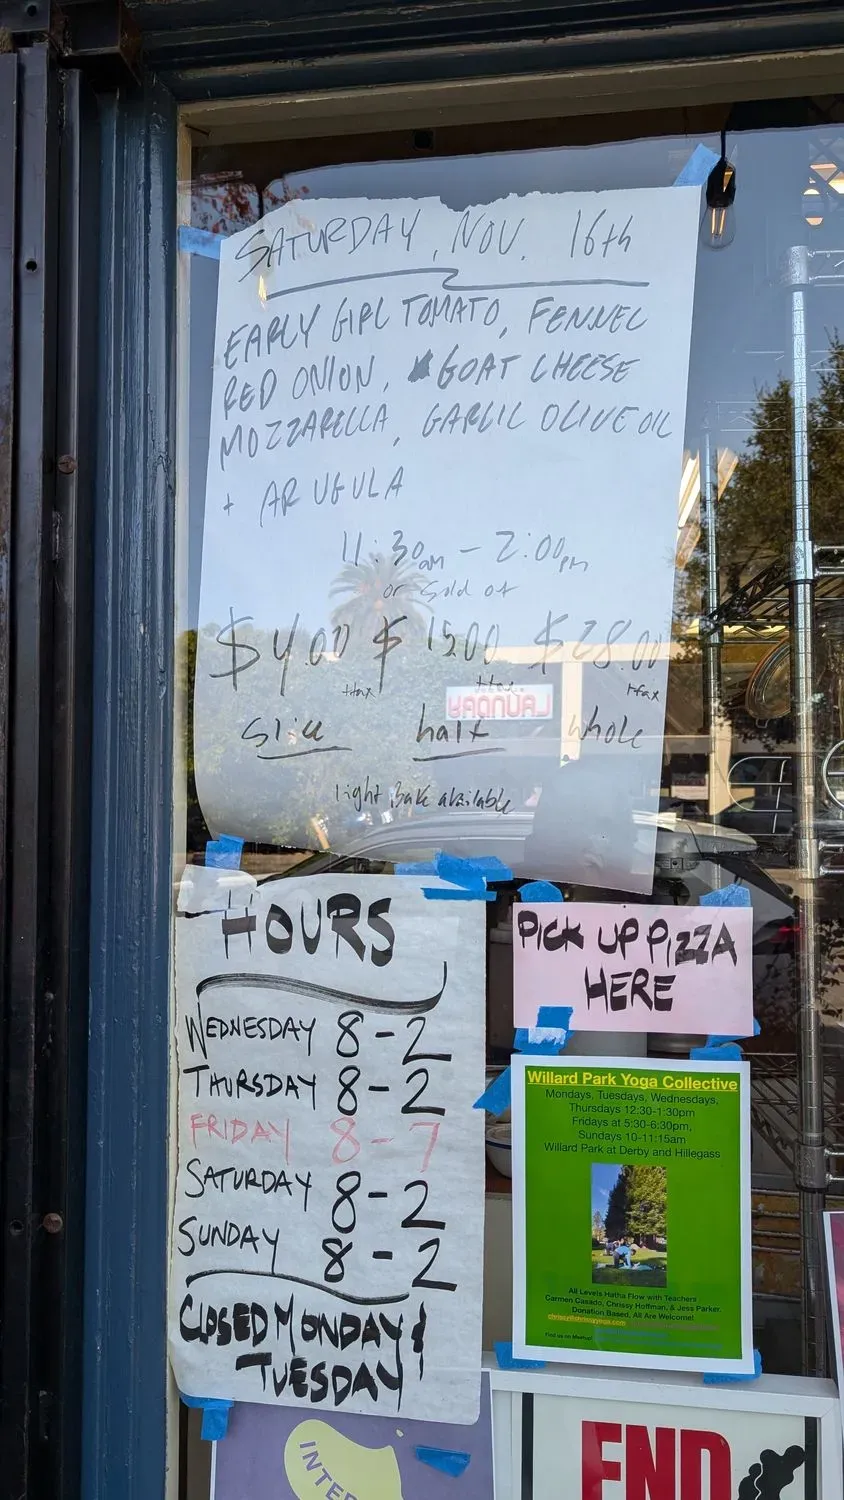 SATURDAY, NOV. 16th
EARLY GIRL TOMATO, FENNEL
RED ONION, GOAT CHEESE
MOZZARELLA, GARLIC OLIVE OIL
+ ARUGULA
11:30am - 2:00pm
or sold ot
$4.00 $15.00 $28.00
+tax +tax +tax
slice half whole
light Bake available
LAUNDRY
HOURS
WEDNESDAY 8-2
THURSDAY 8-2
FRIDAY 8-7
SATURDAY 8-2
SUNDAY 8-2
CLOSED MONDAY &
TUESDAY
PICK UP PIZZA
HERE
Willard Park Yoga Collective
Mondays, Tuesdays, Wednesdays,
Thursdays 12:30-1:30pm
Fridays at 5:30-6:30pm,
Sundays 10-11:15am
Willard Park at Derby and Hillegass
All Levels Hatha Flow with Teachers
Carmen Casado, Chrissy Hoffman, & Jess Parker.
Donation Based, All Are Welcome!
chrissy@chrissyyoga.com
Find us on Meetup!
INTER
END